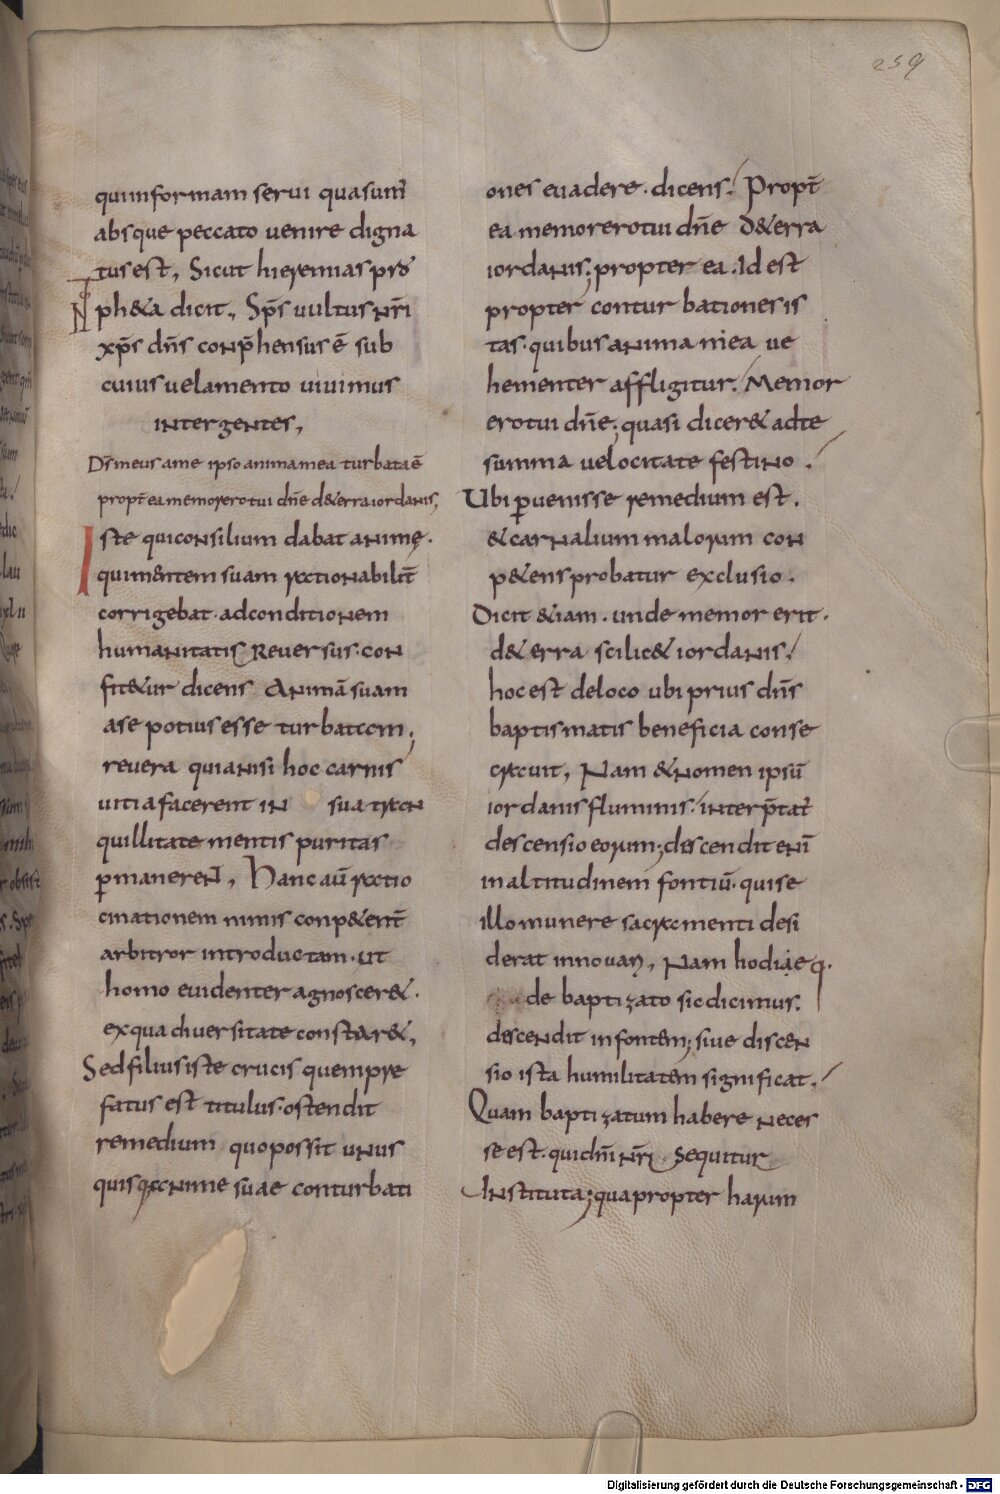 259
qui in formam serui quasum̄
absque peccato uenire digna
tus est, Sicut hieremias pro
ph&a dicit, Sp̄s uultus nr̄i
xp̄s dn̄s conp̄hensus ē sub
cuius uelamento uiuimus
inter gentes,
Ds̄ meus ame ipso anima mea turbata ē
propt̄ ea memor ero tui dn̄e d& erra iordanis,
Iste qui consilium dabat animę.
qui mentem suam rationabilit̄
corrigebat· ad conditionem
humanitatis Reuersus· con
fit&ur dicens Animā suam
ase potius esse turbatam;
reuera quia nisi hoc carnis
uitia facerent in sua tran
quillitate mentis puritas
p̄maneren̄, Hanc aū ratio
cinationem nimis conp&ent̄
arbitror introductam· ut
homo euidenter agnoscer&·
ex qua diuersitate constar&,
Sed filius iste crucis quem pre
fatus est titulus· ostendit
remedium quo possit unus
quisq: animę suae conturbati
ones euadere· dicens·/ Propt̄
ea memor ero tui dn̄e D& erra
iordanis; propter ea· Id est
propter conturbationes is
tas· quibus anima mea ue
hementer affligitur·/ Memor
ero tui dn̄e; quasi dicer& ad te
summa uelocitate festino·/
Ubi p̄uenisse remedium est·
& carnalium malorum con
p&ens probatur exclusio·
Dicit &iam· unde memor erit·
d& erra scilic& iordanis·/
hoc est deloco ubi prius dn̄s
baptismatis beneficia conse
crauit, Nam & nomen ipsū
iordanis fluminis· interp̄tat̄
descensio eorum; descendit enī
in altitudinem fontiū· qui se
illo munere sacramenti desi
derat innouari, Nam hodiæq·
de baptizato sic dicimus·
descendit in fontem; siue discen
sio ista humilitatem significat·/
Quam baptizatum habere neces
se est· qui dn̄i nr̄i Sequitur
Instituta; quapropter harum
Digitalisierung gefördert durch die Deutsche Forschungsgemeinschaft - DFG